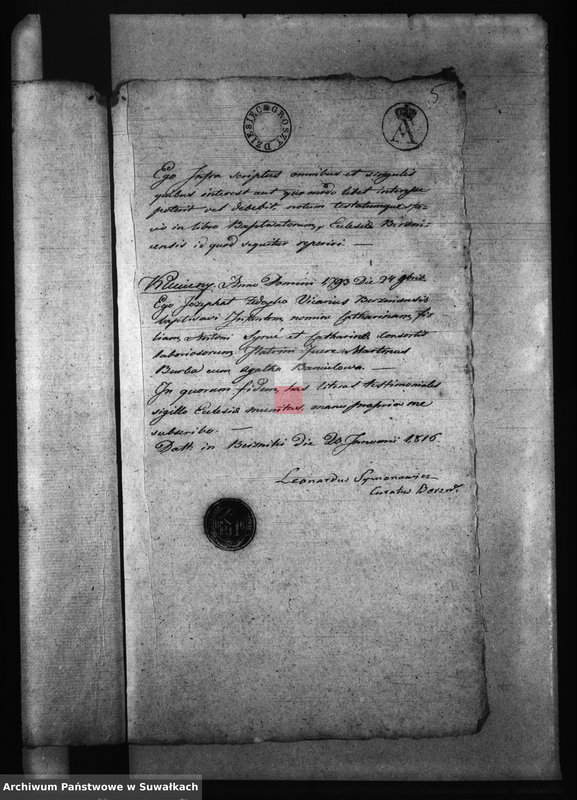 5
DZIESIĘĆ GROSZY
A
Ego Infra scriptus omnibus et singulis
quibus interest aut quomodo libet interesse
poterit vel debebit notum testatumque fa-
cio in libro Baptisatorum, Eclesiæ Bereźni-
censis id quod sequitur reperiri —
Anno Domini 1793 Die 24 9bris
Ego Josephat Vicarius Berznicensis
baptisavi Infantem, nomine Catharinam, fi-
liam, Antoni et Catharinæ consorts
laboriosorum. Patrini fuere Martinus
Burba cum Agatha Baniulowa. —
In quorum fidem, has literas testimoniales
sigillo Eclesiæ munitas, manu propria me
subscribo. —
Datt in Bereźniki die 20 Januarii 1816.
Leonardus Symonowicz
Curatus
Archiwum Państwowe w Suwałkach